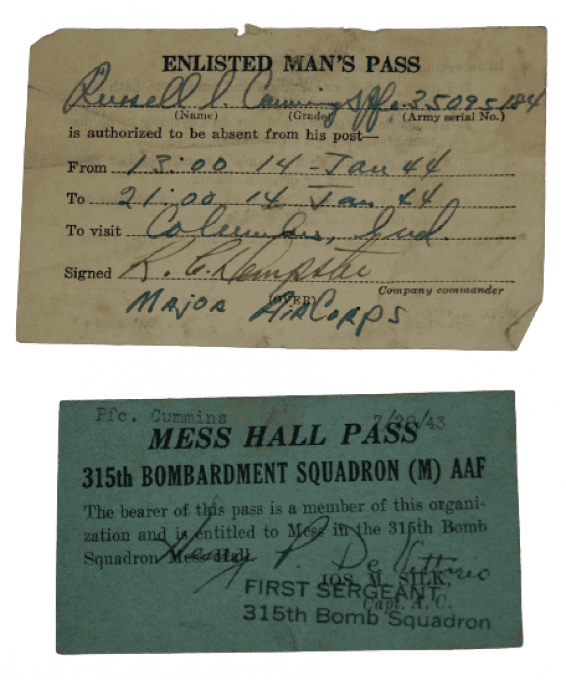 ENLISTED MAN'S PASS
Russell I. Cummins Pfc. 35095184
(Name) (Grade) (Army serial No.)
is authorized to be absent from his post—
From 13:00 14 - Jan 44
To 21:00 14 Jan 44
To visit Columbus, Ind.
Signed R. C. Dempster
Company commander
(OVER)
Major Air Corps
Pfc. Cummins 7/20/43
MESS HALL PASS
315th BOMBARDMENT SQUADRON (M) AAF
The bearer of this pass is a member of this organi-
zation and is entitled to Mess in the 315th Bomb
Squadron Mess Hall
P. De Vittorio
JOS. M. SILK,
FIRST SERGEANT
Capt. A. C.
315th Bomb Squadron